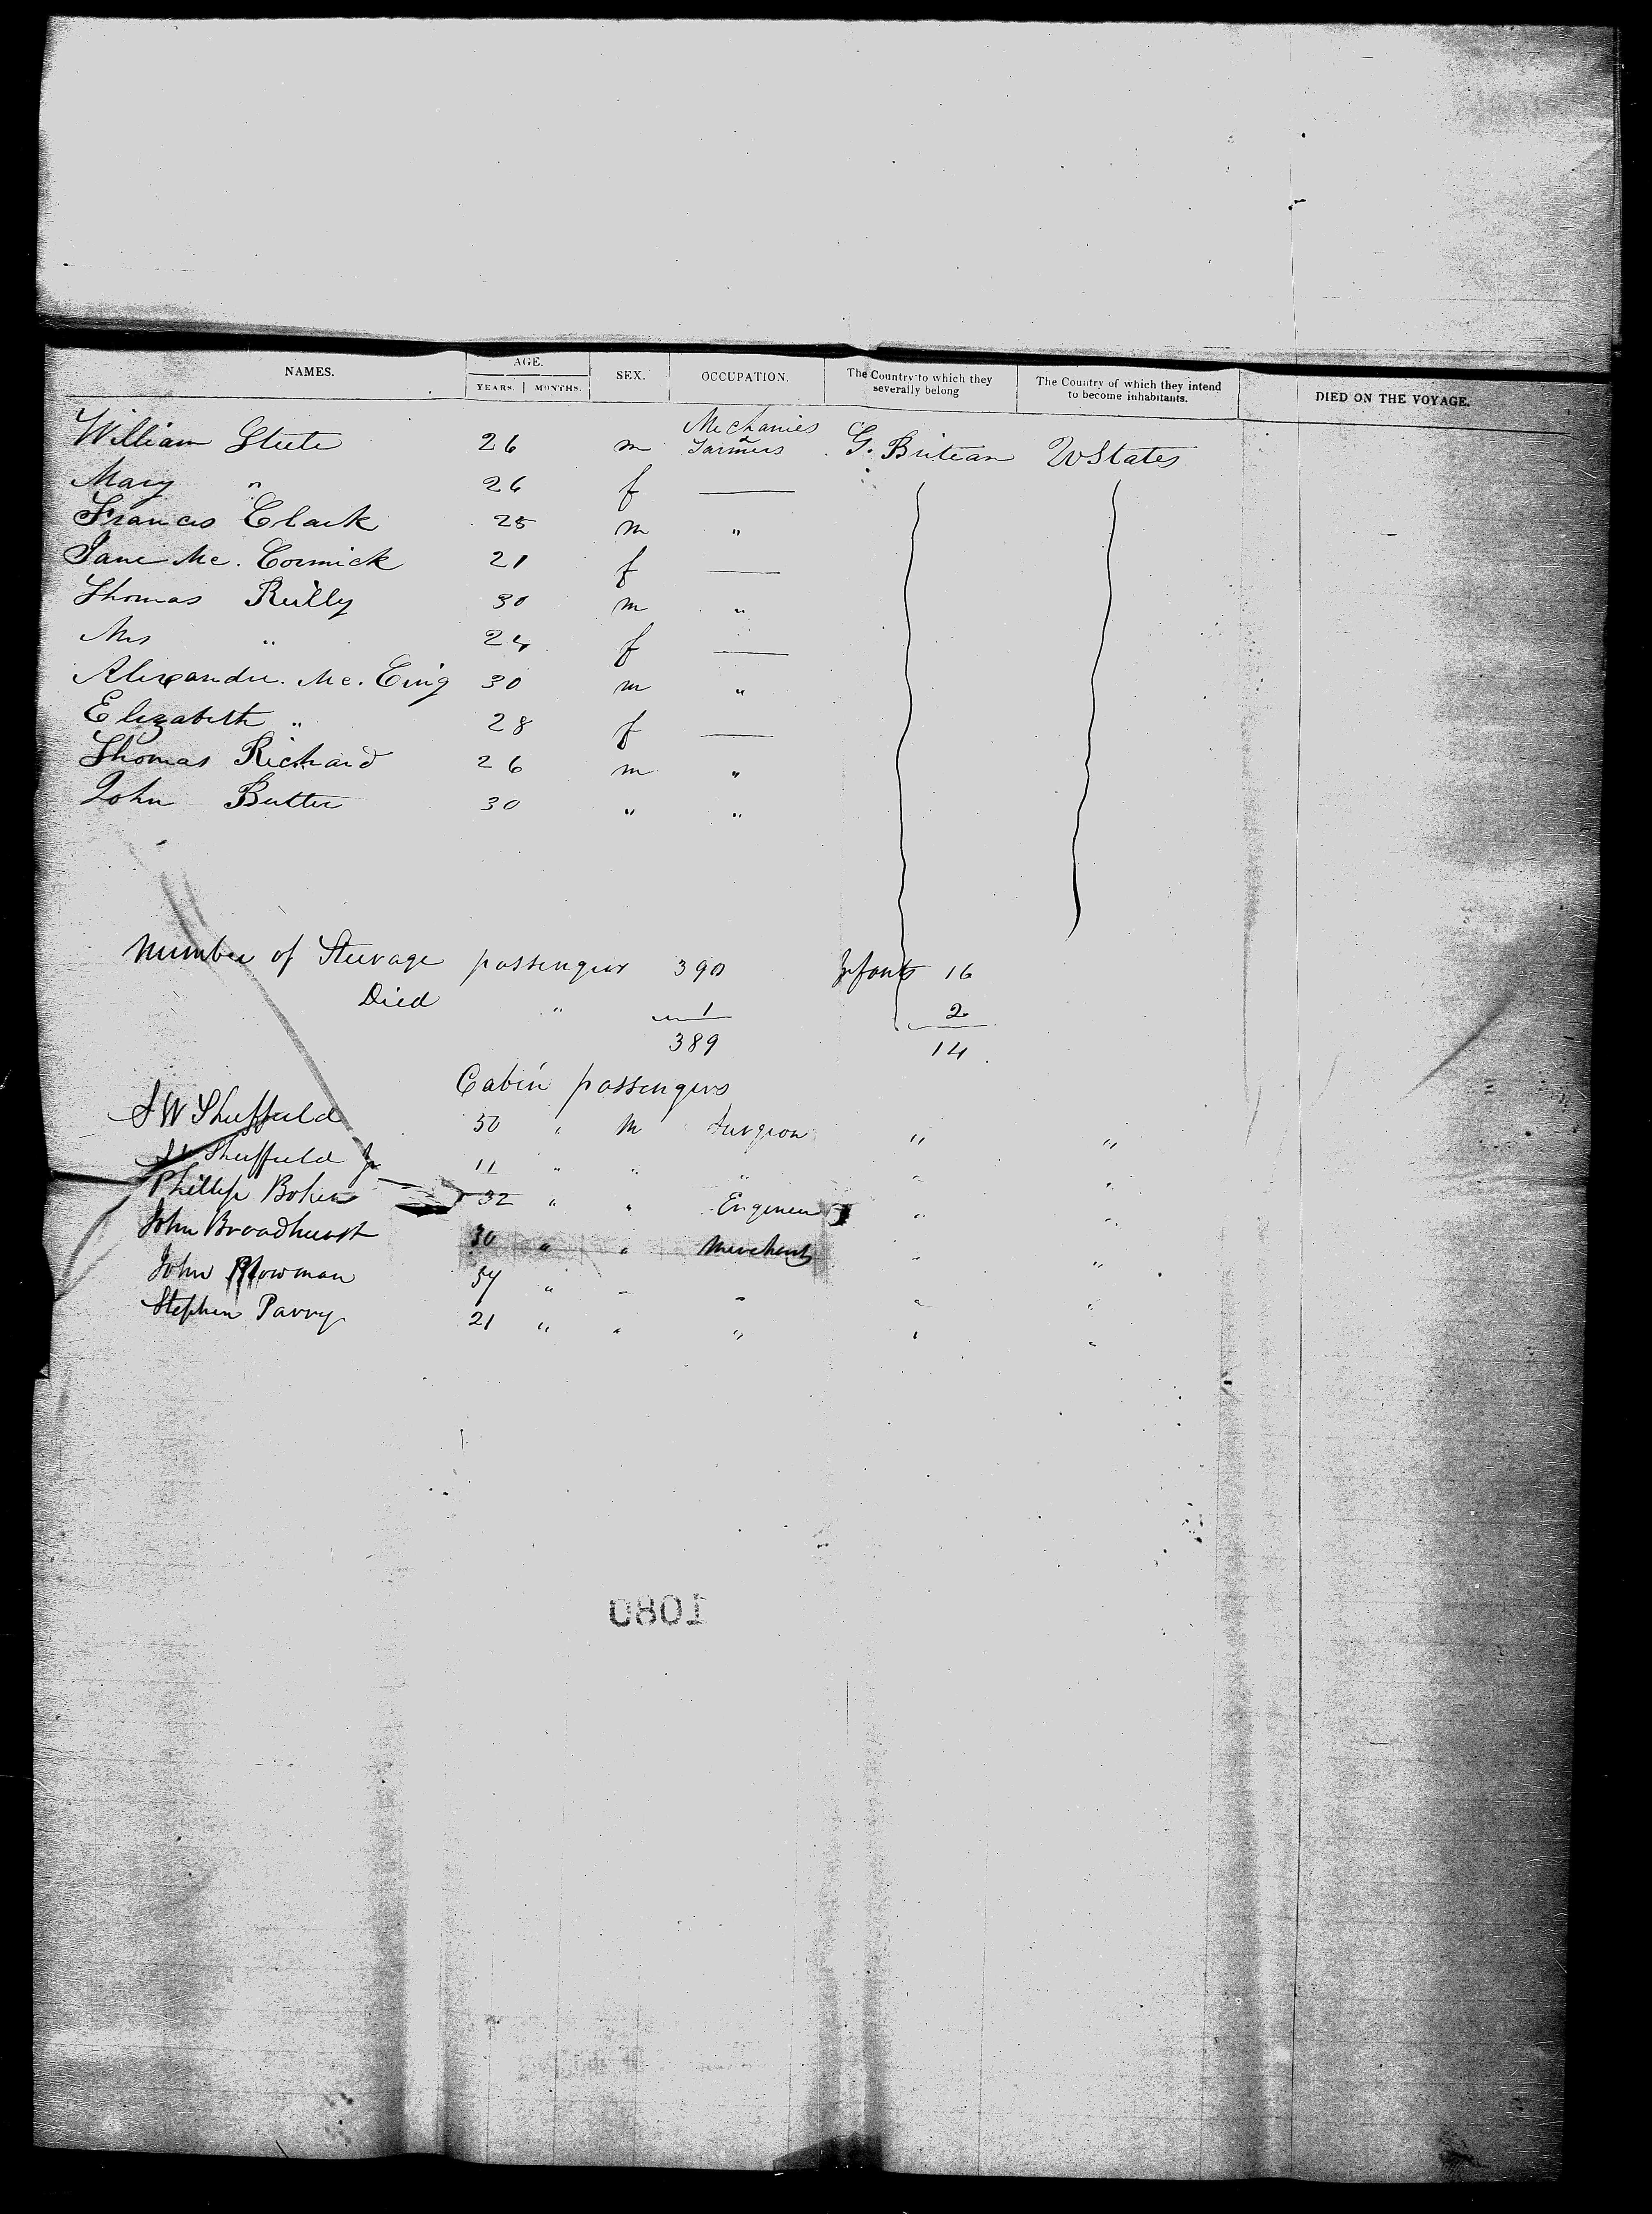 NAMES. AGE. YEARS. MONTHS. SEX. OCCUPATION. The Country to which they severally belong The Country of which they intend to become inhabitants. DIED ON THE VOYAGE.
William Steele 26 m Mechanics & Farmers G. Britean U States
Mary " 26 f —
Francis Clark 25 m "
Jane Mc. Cormick 21 f —
Thomas Reilly 30 m "
Mrs " 24 f —
Alexander. Mc. Ewig 30 m "
Elizabeth " 28 f —
Thomas Richard 26 m "
John Butler 30 " "
Number of Steerage passengers 390 Infants 16
Died " 1 2
389 14
Cabin passengers
S W Sheffield 50 " M Surgeon " "
S W Sheffield Jr 11 " " " " "
Phillip Bohen 32 " " Engineer " "
John Broadhurst 30 " " Merchant " "
John Plowman 54 " " " " "
Stephen Parry 21 " " " " "
1080